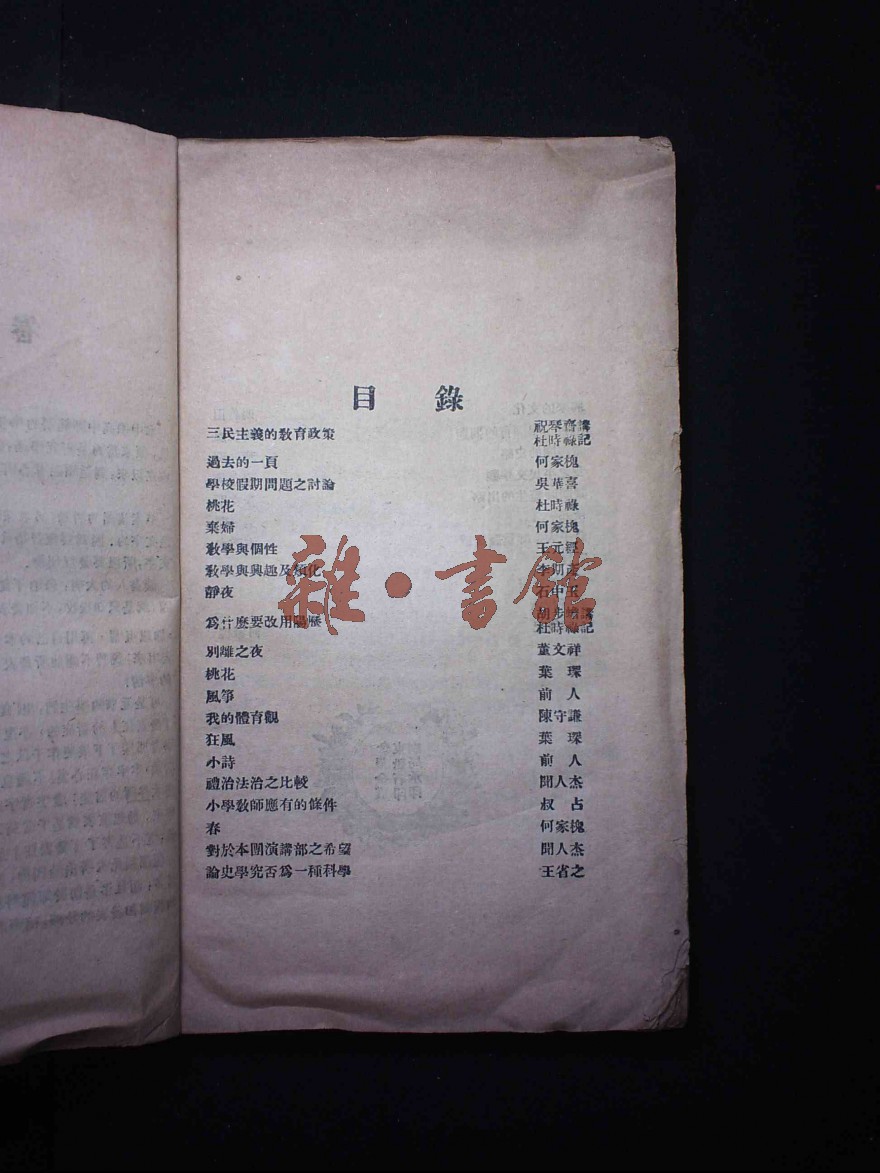 目 錄
三民主義的教育政策 祝琴齋講
杜時祿記
過去的一頁 何家槐
學校假期問題之討論 吳華喜
桃花 杜時祿
棄婦 何家槐
教學與個性 王元經
教學與興趣及類化 李明志
靜夜 石中玉
為什麼要改用陽歷 胡步蟾講
杜時祿記
別離之夜 董文祥
桃花 葉 琛
風箏 前 人
我的體育觀 陳守謙
狂風 葉 琛
小詩 前 人
禮治法治之比較 聞人杰
小學教師應有的條件 叔 占
春 何家槐
對於本團演講部之希望 聞人杰
論史學究否為一種科學 王省之
雜·書館